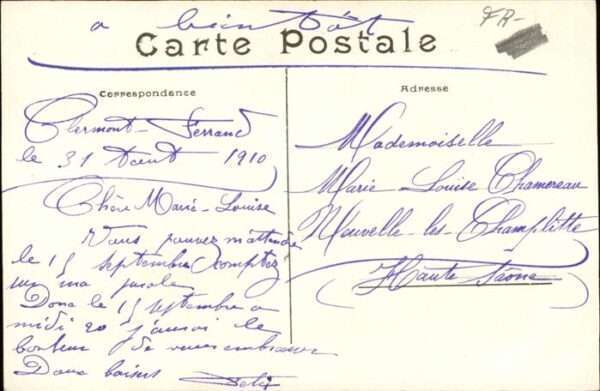 a bientôt
FR-
Carte Postale
Correspondance
Clermont-Ferrand
le 31 Aout 1910
Chère Marie-Louise
Vous pouvez m'attendre
le 15 septembre comptez
sur ma parole
Donc le 15 septembre a
midi 20 j'aurai le
bonheur de vous embrasser
Doux baisers
Adresse
Mademoiselle
Marie-Louise Chamereau
Neuvelle-les-Champlitte
Haute Saône